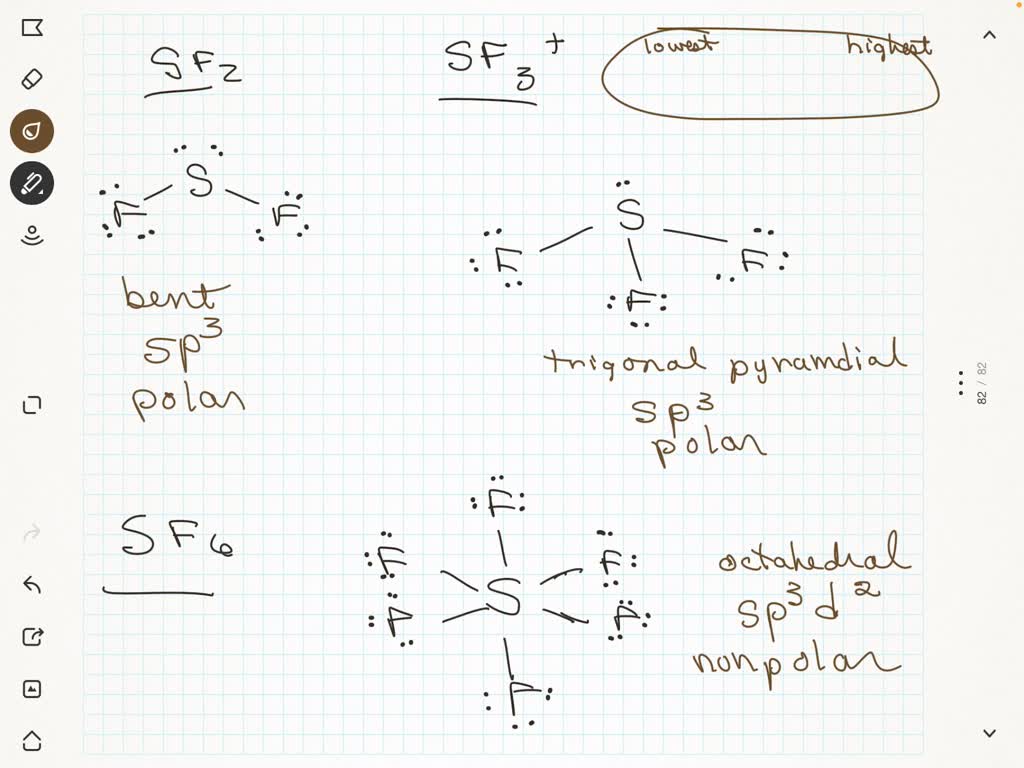 SF2
SF3+
lowest highest
S
F F
bent
sp3
polar
S
F F
F
trigonal pyramdial
sp3
polar
SF6
F
F F
S
F F
F
octahedral
sp3d2
nonpolar
82 / 82